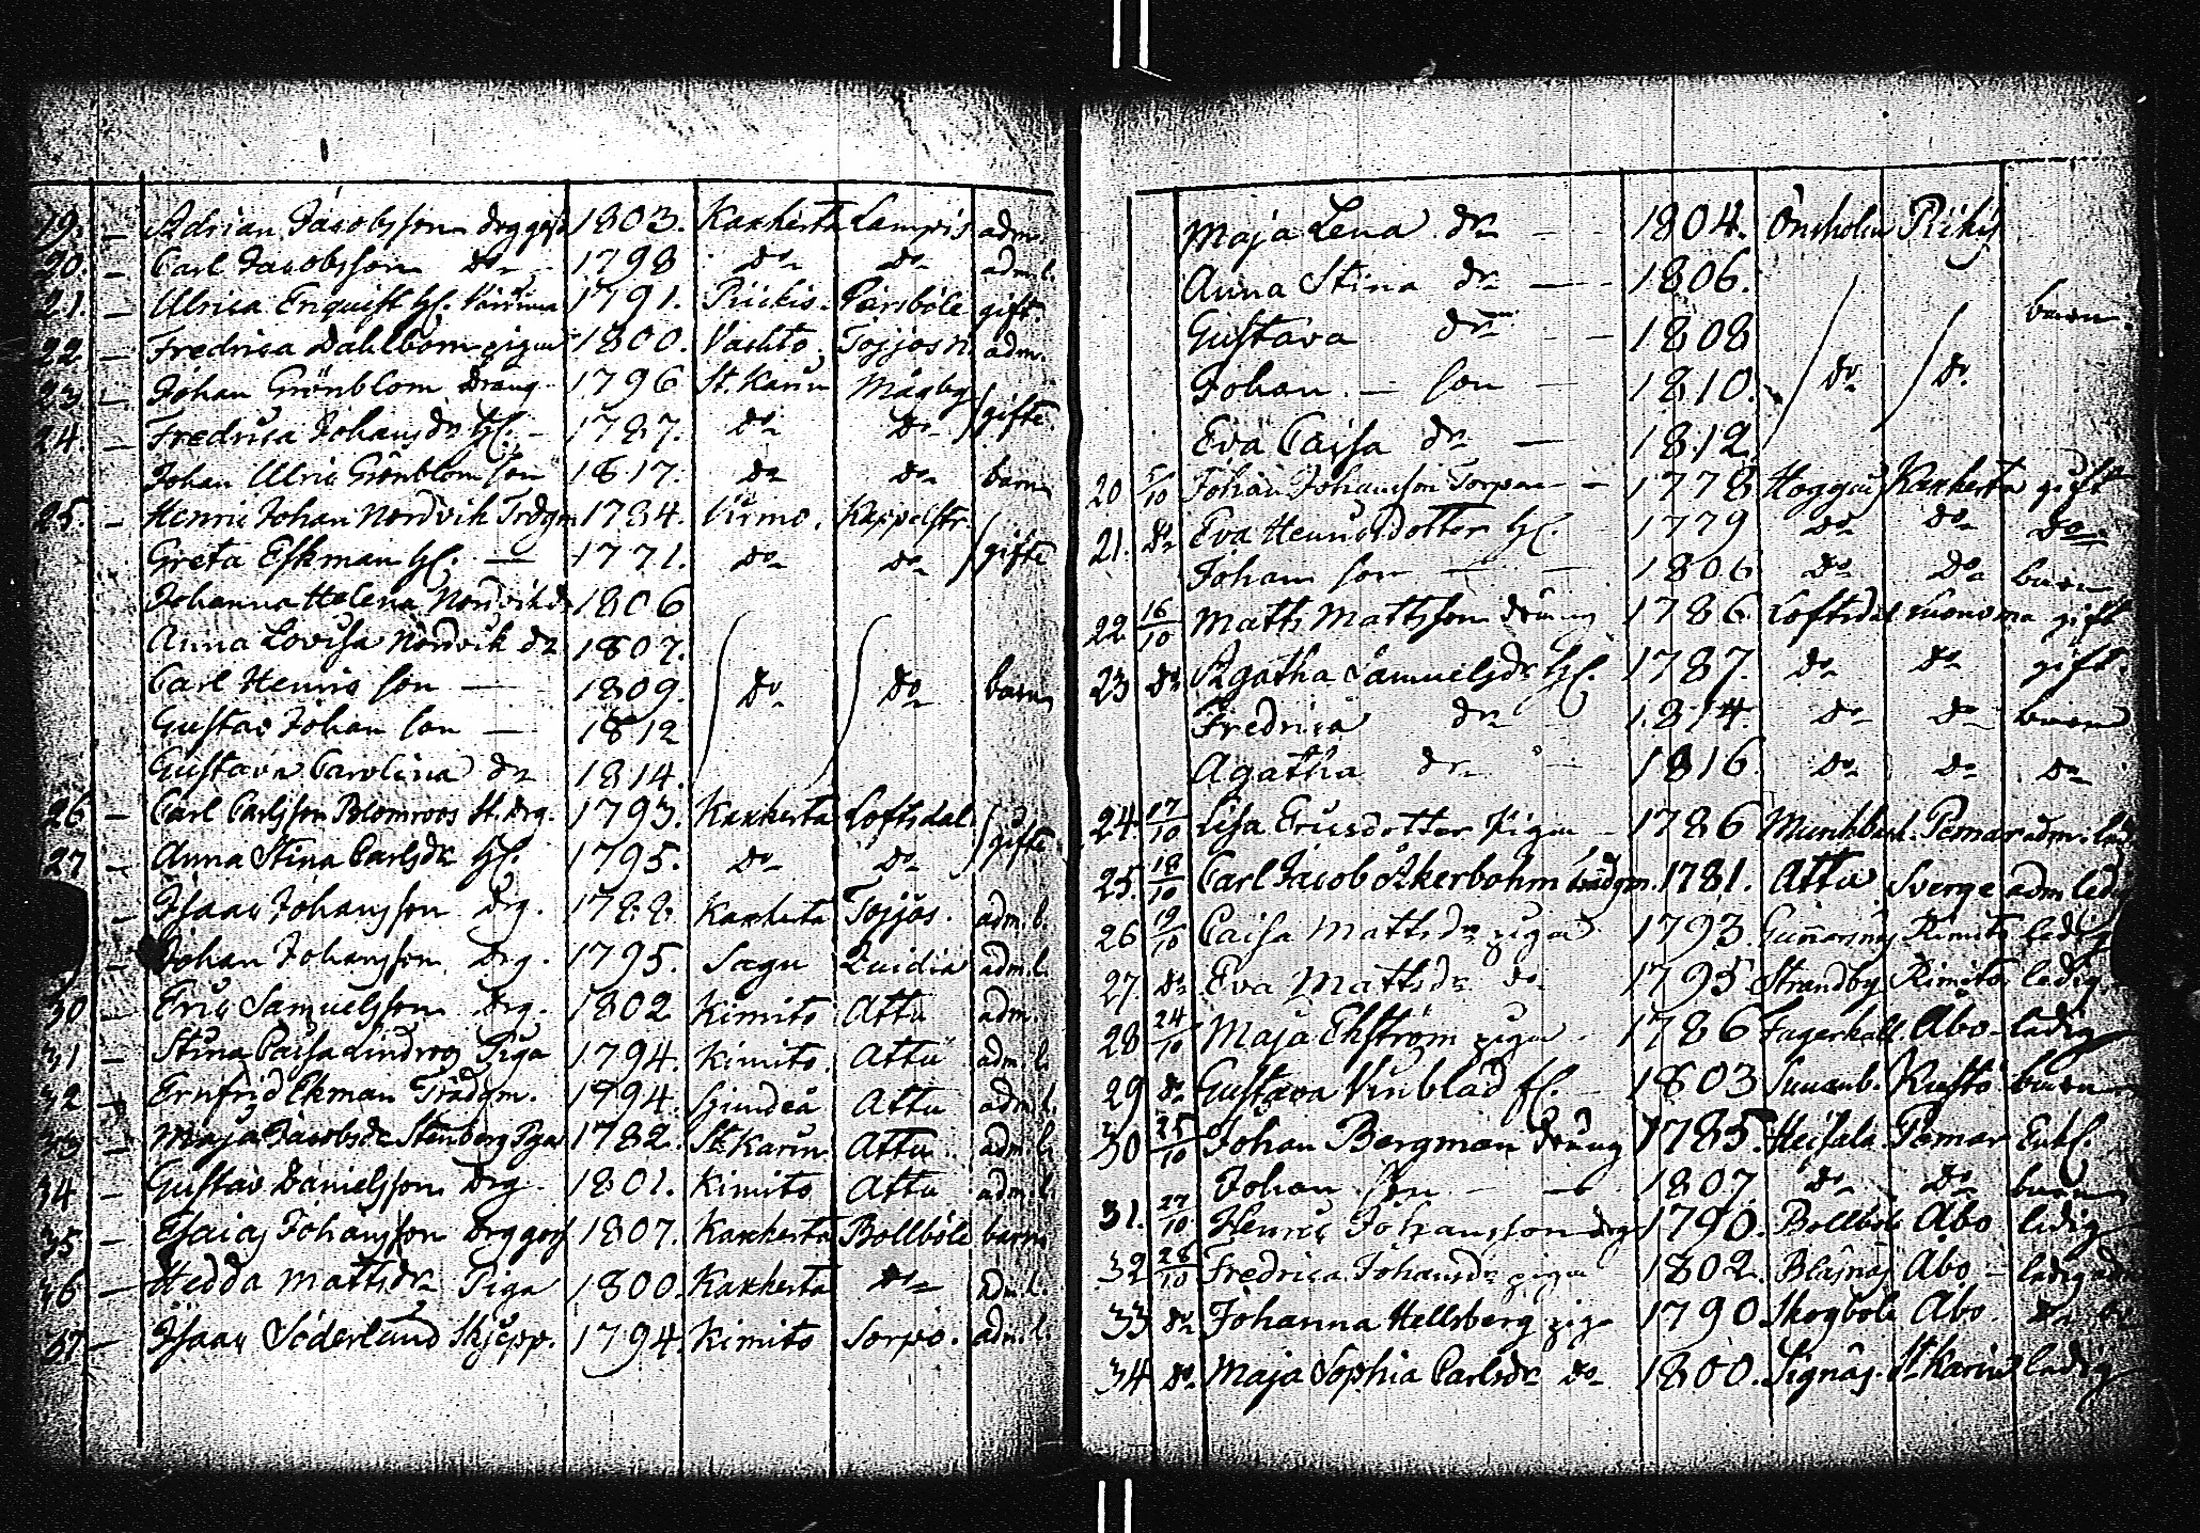 19. — Adrian Jacobsson drggosse 1803. Kakskerta Lampis adm.
20. — Carl Jacobsson do 1798 do do adm. l.
21. — Ulrica Enquist H. 1791. Piickis. Pärsböle gift.
22. — Fredrica Dahlbom piga 1800. Vachto. Tojjosn. adm.
23. — Johan Grönblom Dräng 1796 St. Karin Mågby gifte.
24. — Fredrica Johansdr H. — 1787. do do
Johan Ulric Grönblom son 1817. do do barn
25. — Henric Johan Nordvik Trdgm 1784. Virmo. Kappelstr. gifte
Greta Eskman H. — 1771. do do
Johanna Helena Nordvik dr 1806
Anna Lovisa Nordvik dr 1807.
Carl Henric son — 1809. do do barn
Gustav Johan son — 1812
Gustava Carolina dr 1814.
26 — Carl Carlsson Blomroos St. drg. 1793. Kakskerta Loftsdal gifte
27 — Anna Stina Carlsdr H. 1795. do do
— Isaac Johansson Drg. 1788 Kakskerta Tojjos. adm. l.
— Johan Johansson Drg. 1795. Sagu Quidia adm. l.
30 — Eric Samuelsson Drg. 1802 Kimito Attu adm.
31 — Stina Caisa Lindroos Piga 1794. Kimito. Attu adm. l.
32 — Ernfrid Ekman Trädgm. 1794. Sjundeå Attu adm. l.
33 — Maja Jacobsdr Stenberg Pga 1782. St. Karin. Attu adm. l.
34 — Gustav Danielsson Drg. 1801. Kimito Attu adm. l.
35 — Esaias Johansson Drggoss 1807. Kakskerta Bollböle barn
36 — Hedda Mattsdr Piga 1800. Kakskerta do adm. l.
37 — Isaac Söderlund Skjepp. 1794. Kimito Sorpo. adm. l.
Maja Lena dr — — 1804. Önsholm Pikis
Anna Stina dr — — 1806.
Gustava dr — — 1808 barn.
Johan — son — 1810. do do
Eva Caisa dr — 1812.
20 5/10 Johan Johansson Torpare — 1778 Haggais Kakskerta gift
21. do Eva Henricsdotter H. 1779 do do do
Johan son — — 1806 do do barn
22 16/10 Matts Mattsson dräng 1786. Loftsdal gift
23 do Agatha Samuelsdr H. 1787. do do gift.
Fredrica dr 1814. do do barn
Agatha dr — 1816 do do do
24 17/10 Lisa Ericsdotter Piga — 1786 Munkback. Pemar adm. led.
25. 18/10 Carl Jacob Åkerbohm trädgm. 1781. Attu Sverge adm led
26 19/10 Caisa Mattsdr piga 1793. Gunnarsnäs Kimito ledig
27. do Eva Mattsdr do 1795 Strandby Kimito. ledig
28 24/10 Maja Ekström piga 1786 Fagerkull. Åbo ledig
29 do Gustava Vinblad fl. — 1803 Sunanb. Kustö barn
30 25/10 Johan Bergman dräng 1785. Heisala Pemar Enkl.
Johan son — — 1807 do do barn
31. 27/10 Henric Johansson drg 1790. Bollböle Åbo ledig
32 28/10 Fredrica Johansdr piga 1802. Blåsnäs Åbo — ledig adm
33 do Johanna Hellsberg piga 1790 Skogböle Åbo. do do
34 do. Maja Sophia Carlsdr do 1800. Signäs. St. Karin ledig